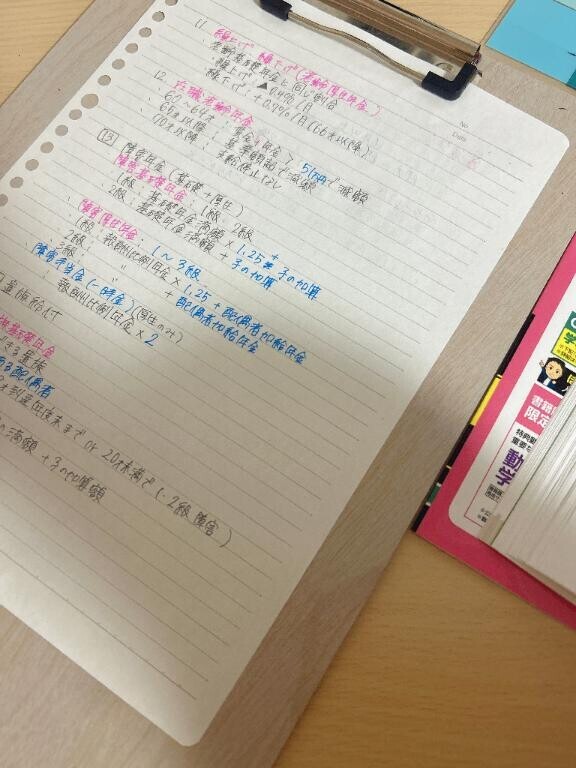 No
Date
11. 繰上げ・繰下げ(老齢厚生年金)
老齢基礎年金と同じ割合
繰上げ：▲0.4%/月
繰下げ：+0.7%/月(66才以降)
12. 在職老齢年金
60〜64才：賃金+年金>51万で減額
65才以降：基準額超で減額
70才以降：支給停止なし
13 障害年金(基礎+厚生)
障害基礎年金：1級、2級
1級：基礎年金満額×1.25+子の加算
2級：基礎年金満額+子の加算
障害厚生年金：1〜3級
1級：報酬比例年金×1.25+配偶者加給年金
2級：〃 +配偶者加給年金
3級：〃
障害手当金(一時金)(厚生のみ)
報酬比例年金×2
遺族給付
遺族基礎年金
きる遺族
ある配偶者
才到達年度末までor 20才未満で1・2級障害)
の満額+子の加算額
書籍
限定
特典
重要
動
学